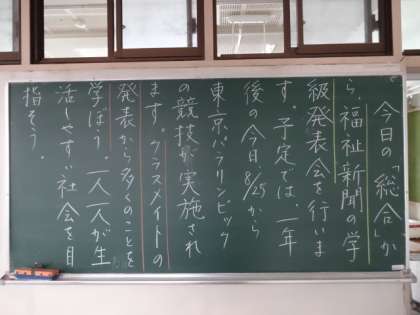 今日の「総合」か
ら、福祉新聞の学
級発表会を行いま
す。予定では、一年
後の今日8/25から
東京パラリンピック
の競技が実施され
ます。クラスメイトの
発表から多くのことを
学ぼう。一人一人が生
活しやすい社会を目
指そう。